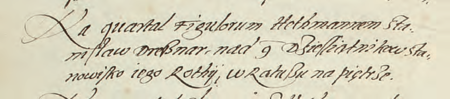 Na quartał Figulorum Hethmanem Sta-
nisław Dreznar. nad 9 Dziesiątników Sta-
nowisko iego Rothy, w Ratuszu na piętrze.